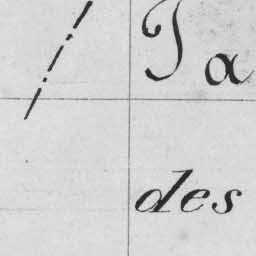 Ta
des